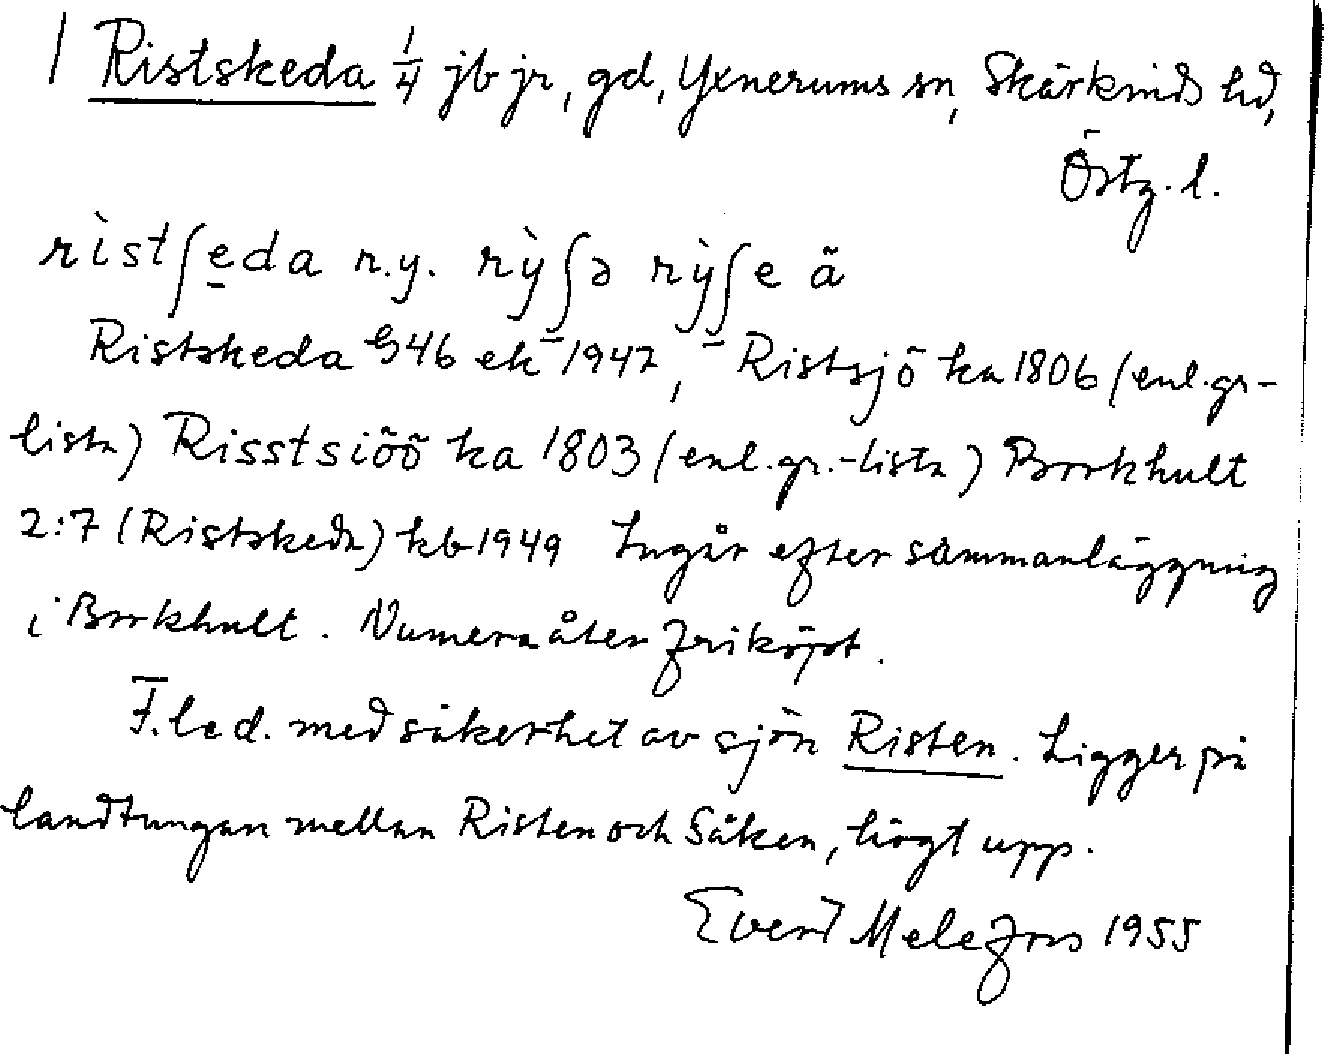 1 Ristskeda 1/4 jb jr, gd, Yxnerums sn, Skärkinds hd,
Östg. l.
rìstʃe̱da n.y. rỳʃə rỳʃe ä
Ristskeda G46 ek 1947, Ristsjö ka 1806 (enl. gr-
lista) Risstsiöö ka 1803 (enl. gr.-lista) Borkhult
2:7 (Ristskeda) kb 1949 Ingår efter sammanläggning
i Borkhult. Numera åter friköpt.
F.led. med säkerhet av sjön Risten. Ligger på
landtungan mellan Risten och Såken, högt upp.
Evert Melefors 1955